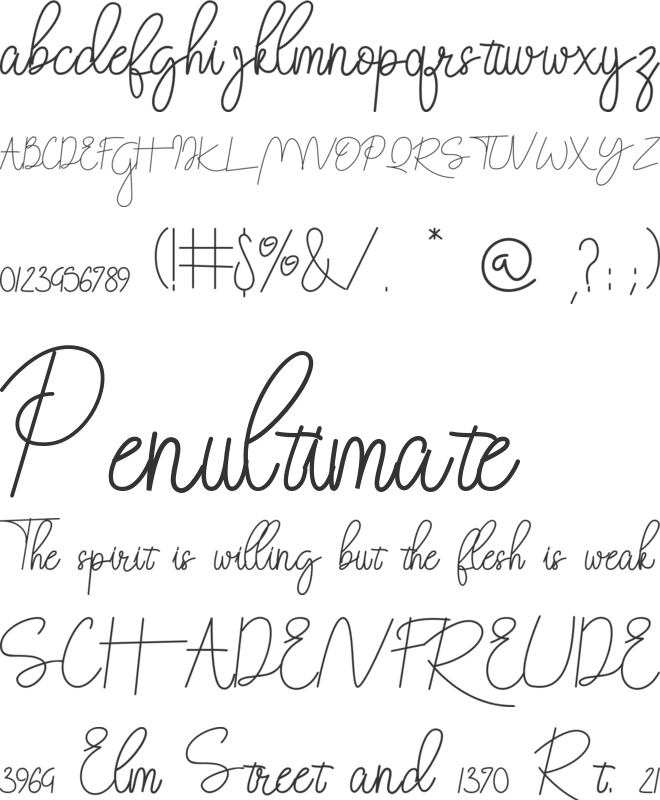 abcdefghijklmnopqrstuvwxyz
ABCDEFGHIJKLMNOPQRSTUVWXYZ
0123456789 (!#$%&/ . * @ ,?:;)
Penultimate
The spirit is willing but the flesh is weak
SCHADENFREUDE
3964 Elm Street and 1370 Rt. 21